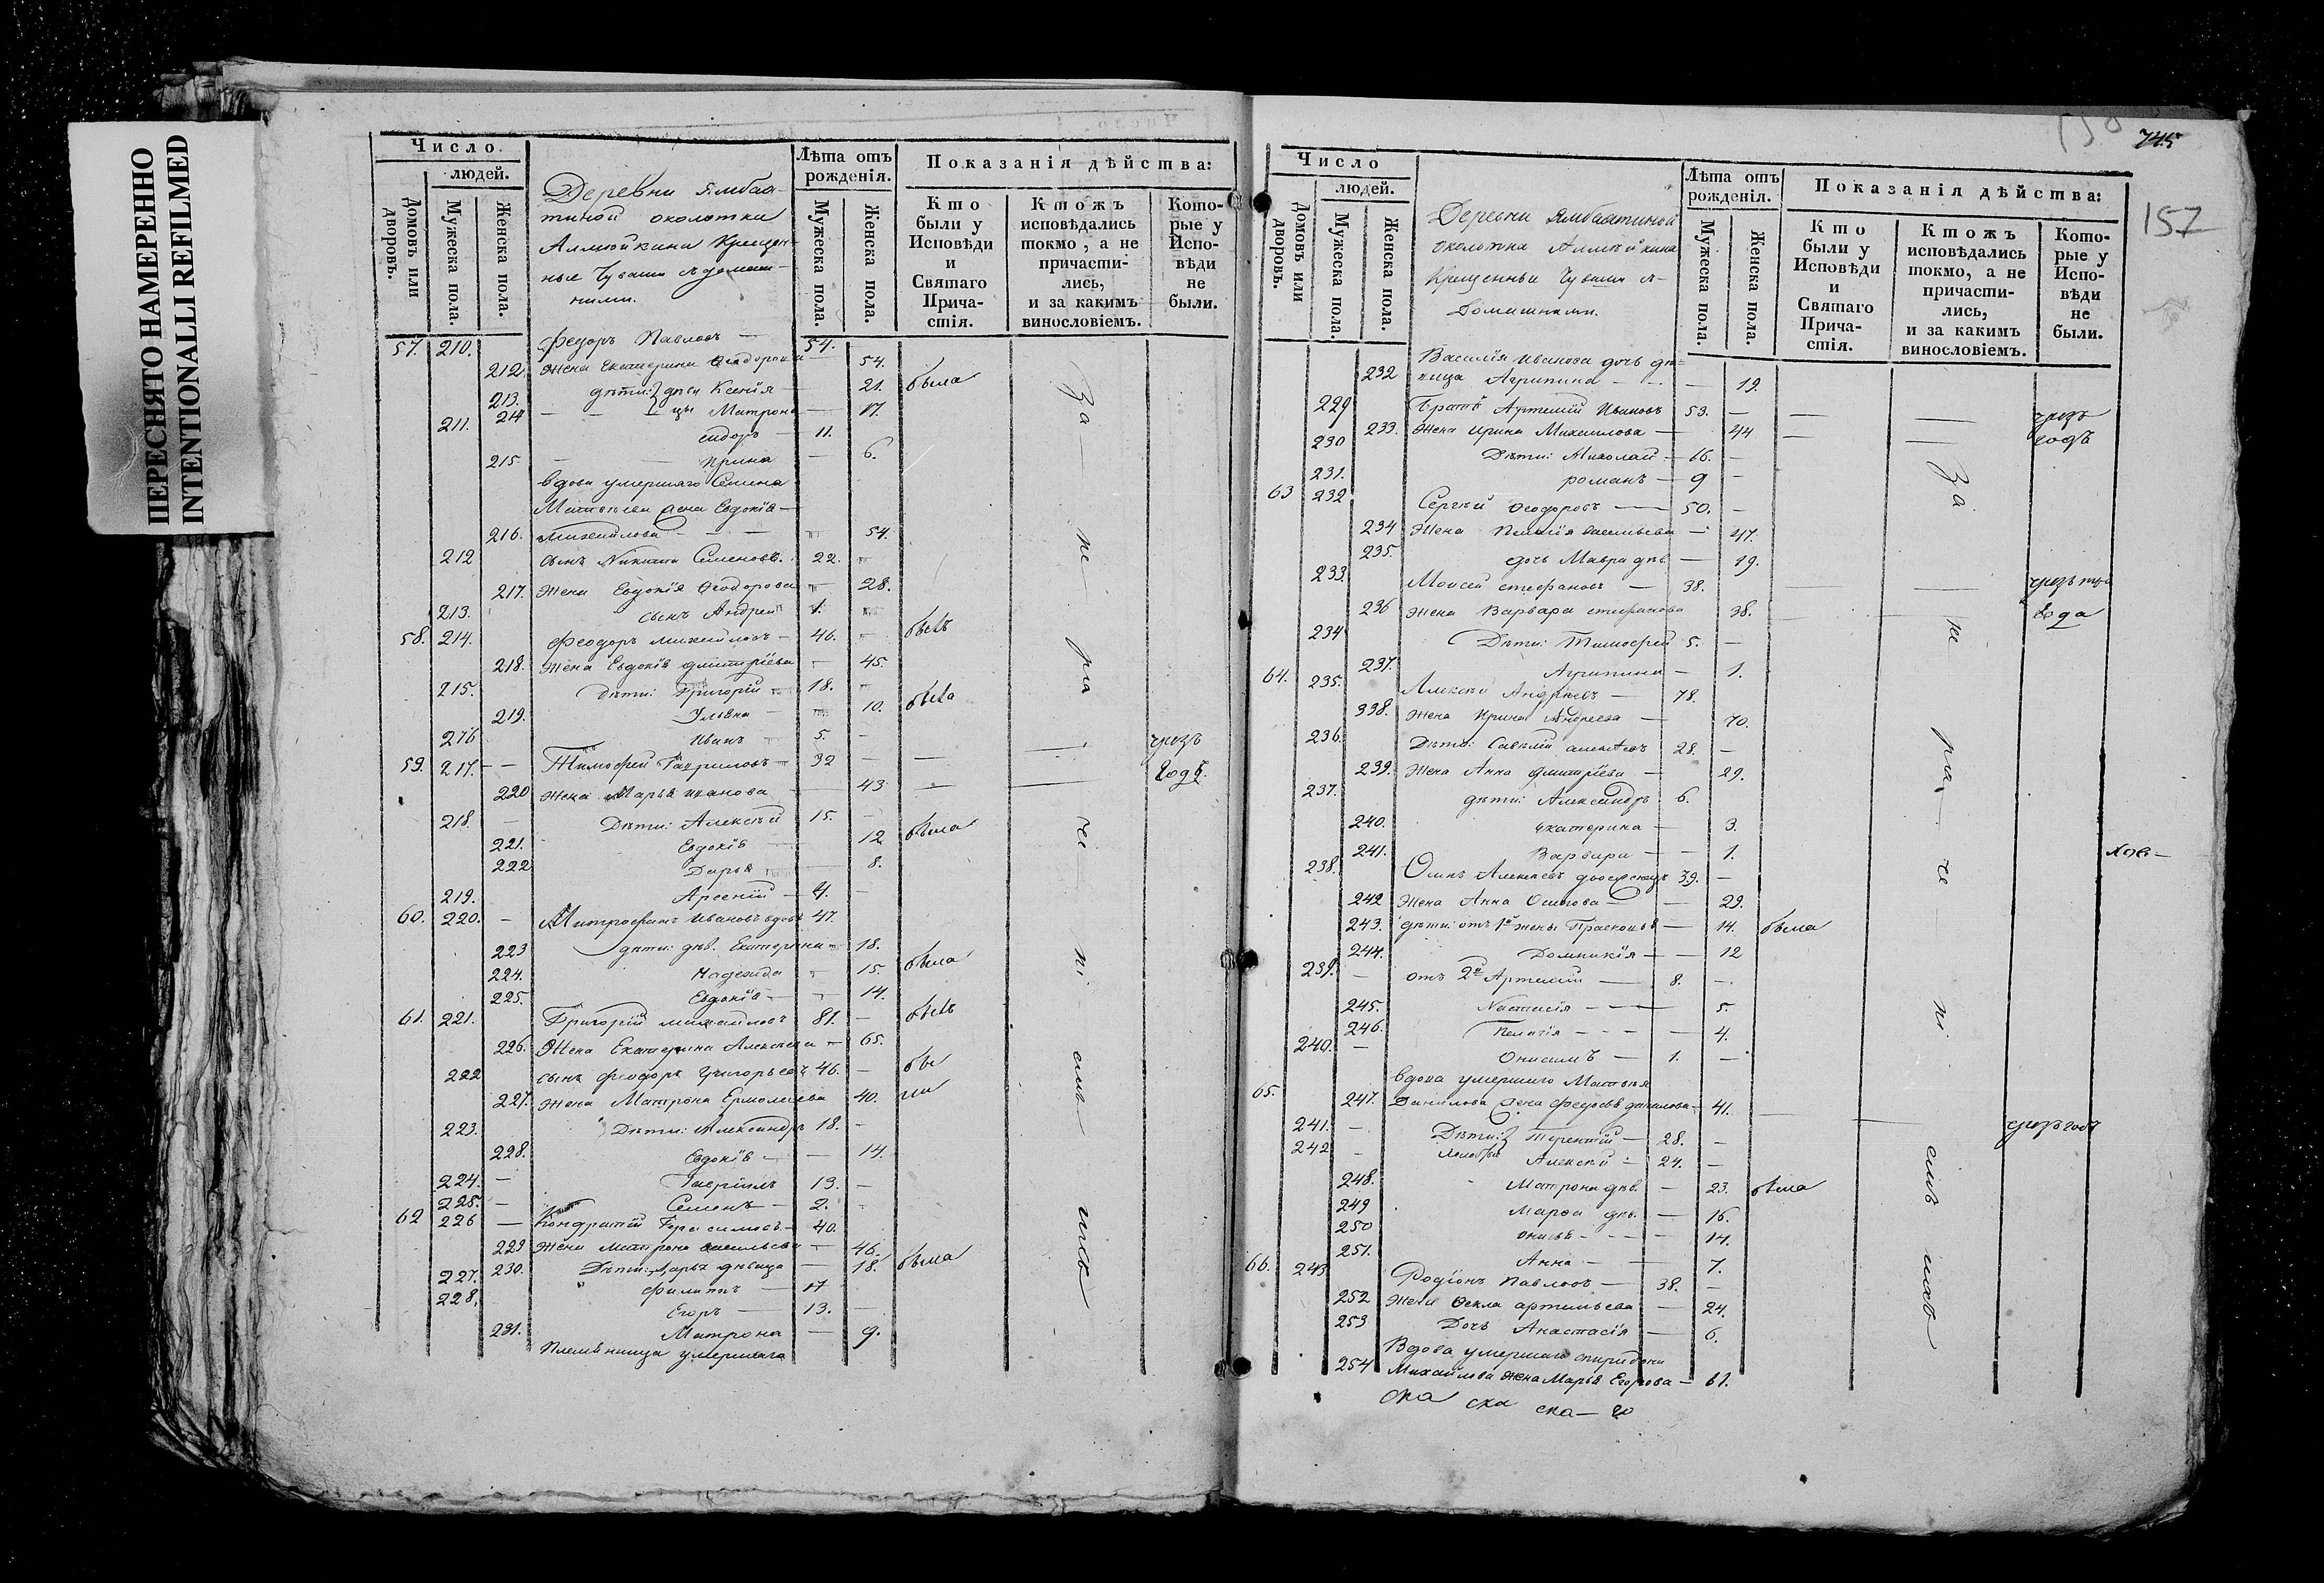 ПЕРЕСНЯТО НАМЕРЕННО
INTENTIONALLI REFILMED
Число
людей.
Домовъ или дворовъ.
Мужеска пола.
Женска пола.
Деревни Ямбах-
тиной околотки
Алмюйкина Крещен-
ные Чуваши съ домаш-
ними.
Лѣта отъ рожденія.
Мужеска пола.
Женска пола.
Показанія дѣйства:
Кто были у Исповѣди и Святаго Причастія.
Ктожъ исповѣдались токмо, а не причасти-лись, и за какимъ винословіемъ.
Кото-рые у Испо-вѣди не были.
57. 210. Федоръ Павловъ — 54.
212. Жена Екатерина Ѳеодорова 54.
213. дѣти: дѣви Ксенія — 21. была
214 — цы Матрона — 17.
211. сидоръ — 11.
215. — Ирина — 6.
вдова умершаго Семена
Матвѣева жена Евдокія —
216. михайлова — 54.
212 сынъ Никита Семеновъ. 22.
217. Жена Евдокія Ѳеодорова 28.
213. сынъ Андрей 1.
58. 214. Феодоръ михайловъ — 46. былъ
218. Жена Евдокія дмитріева — 45.
215. дѣти: Григорій 18.
219. Ульяна — 10. была
216 Иванъ 5. —
59. 217. — — Тимофей Гавриловъ 32 — — чрезъ
220 Жена Марья иванова 43 — годъ.
218. Дѣти: Алексѣй 15.
221. Евдокія 12 была
222 Дарья 8.
219. Арсеній — 4. —
60. 220. — Митрофанъ Ивановъ вдовъ 47.
223 дѣти: дѣв. Екатерина — 18.
224. Надежда 15. была
225. Евдокія — 14.
61. 221. Григорій михайловъ 81. — былъ
226. Жена Екатерина Алексѣева — 65.
222 сынъ феодоръ Григорьевъ 46. — бы
227. Жена Матрона Ермолаева 40. ли
223. Дѣти: Александръ 18. —
228. Евдокія — 14.
224. — Гавріилъ 13. —
225. — Семенъ — 2.
62 226 — Кондратій Герасимовъ — 40.
229 Жена Матрона васильева 46.
230. Дѣти: Марья дѣвица — 18. была
227. филиппъ — 17
228. Егоръ — 13. —
231. Матрона — 9.
Племѣнница умершаго
За — не — при — ча — сті — емъ — ихъ
745
157
Число
людей.
Домовъ или дворовъ.
Мужеска пола.
Женска пола.
Деревни Ямбахтиной
околотка Алмюйкина
Крещенныи Чуваши съ
Домашними.
Лѣта отъ рожденія.
Мужеска пола.
Женска пола.
Показанія дѣйства:
Кто были у Исповѣди и Святаго Прича-стія.
Ктожъ исповѣдались токмо, а не причасти-лись, и за какимъ винословіемъ.
Кото-рые у Испо-вѣди не были.
Василія иванова дочь дѣ-
232 вица Агрипина — — 19.
229 Братъ Артемій Ивановъ 53. — — — чрезъ
233. Жена Ирина Михаилова — 44 — — годъ
230 Дѣти: Миколай — 16. —
231. романъ — 9 —
63 232 Сергѣй Ѳеодоровъ — 50. —
234 Жена Пелагія васильева — 47.
235. дочь Мавра дѣв. — 19.
233. Моисей стефановъ — 38. —
236 Жена Варвара стефанова 38. — года
234 Дѣти: Тимофей 5. —
237. Агрипина — 1.
64. 235. Алексѣй Андрѣевъ — 78.
338. Жена Ирина Андреева — 70.
236. Дѣти: Савелій алексѣевъ 28. —
239. Жена Анна дмитріева — 29.
237. дѣти: Александръ 6.
240. екатерина — 3.
241. Варвара — — 1.
238. Алексѣевъ 39. —
242 Жена Анна Осипова — — 29.
243. дѣти: отъ 1й жены Прасковья — 14. была
244. Домникія — — 12
239. — отъ 2й Артемій — 8. —
245. Настасія — — — 5.
246. Пелагія — — — 4.
240. — Онисимъ — 1. —
вдова умершаго Матвѣя
65. 247. Данилова жена Федосья данилова — 41. — — чрезъ годъ
241. — Дѣти: Терентій — 28. —
242 — Алексѣй — 24. —
248. Матрона дѣв. — 23. была
249 Марѳа дѣв. — 16.
250 — — — 14.
251. Анна — — 7.
66. 243 Родіонъ Павловъ — 38. —
252 Жена Ѳекла артемьева — 24.
253 Дочь Анастасія — 6.
Вдова умершаго спиридона
254 Михайлова жена Марья Егорова — 61.
За — не — при — ча — сті — емъ ихъ